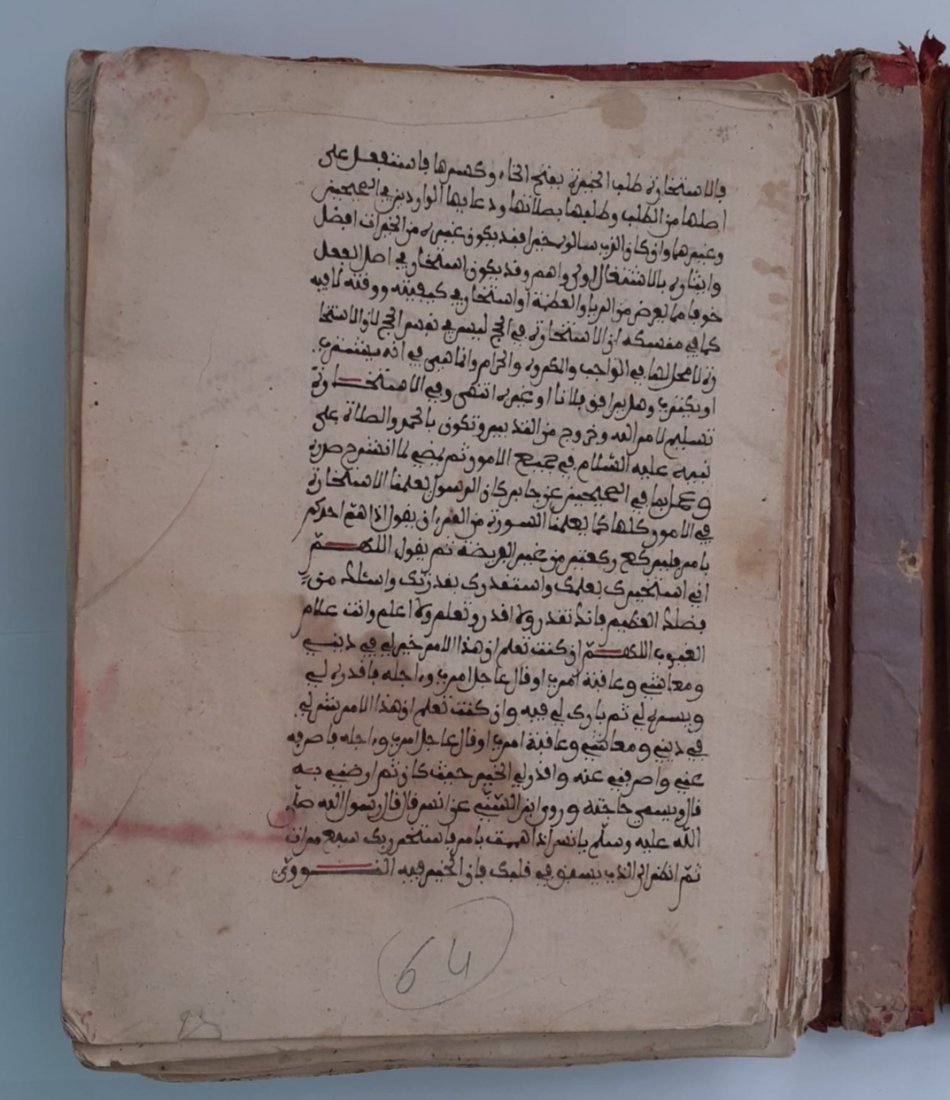 فالاستخارة طلب الخيرة بفتح الخاء وكسرها فاستفعل على
اصلها من الطلب وطلبها بصلاتها ودعايها الواردين في الصحيحين
وغيرهما وان كان الذي سالوه خيرا فقد يكون غيره من الخيرات افضل
وايثاره بالاشتغال اولى واهم وقد يكون استخار في اصل الفعل
خوفا مما يعرض من الريا والعظمة او استخار في كيفيته ووقته لما فيه
كما في منسكه ان الاستخارة في الحج ليس في نفس الحج لان الاستخا
رة لا محل لها في الواجب والمكروه والحرام وانما هي في انه يشتري
او يكتري وهل يرافق فلانا او غيره انتهى وفي الاستخارة
تسليم لامر الله وخروج من التدبير وتكون بالحمد والصلاة على
نبيه عليه السلام في جميع الامور ثم يمضي لما انشرح صدره
وعملا بما في الصحيحين عن جابر كان الرسول يعلمنا الاستخارة
في الامور كلها كما يعلمنا السورة من القرءان يقول اذا هم احدكم
بامر فليركع ركعتين من غير الفريضة ثم يقول اللهم
اني استخيرك بعلمك واستقدرك بقدرتك واسئلك من
فضلك العظيم فانك تقدر ولا اقدر وتعلم ولا اعلم وانت علام
الغيوب اللهم ان كنت تعلم ان هذا الامر خير لي في ديني
ومعاشي وعاقبة امري او قال عاجل امري وءاجله فاقدره لي
ويسره لي ثم بارك لي فيه وان كنت تعلم ان هذا الامر شر لي
في ديني ومعاشي وعاقبة امري او قال عاجل امري وءاجله فاصرفه
عني واصرفني عنه واقدر لي الخير حيث كان ثم ارضني به
قال ويسمي حاجته وروى ابن السني عن انس قال قال رسول الله صلى
الله عليه وسلم يا انس اذا هممت بامر فاستخر ربك سبع مرات
ثم انظر الى الذي يسبق في قلبك فان الخير فيه النووي
64